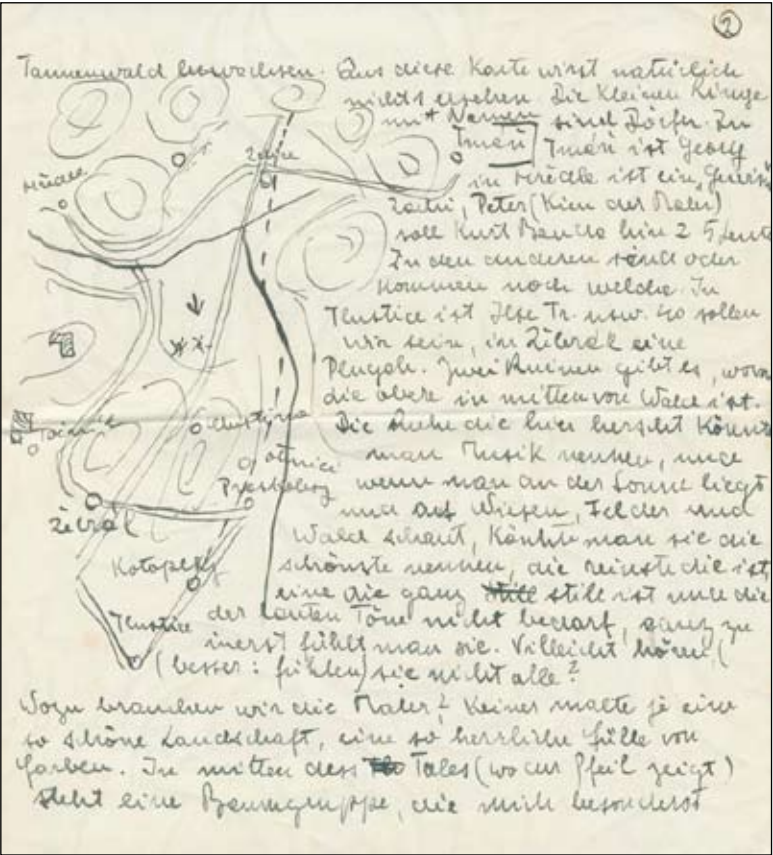 2
Tannenwald bewachsen. Aus diese Karte wirst natürlich
nichts ersehen. Die kleinen Ringe
mit Namen sind Dörfer. In
Tmaň Tmaň ist Georg
in ist ein
Peter (Kien der Maler)
soll Kurt hin 2
In den anderen sind oder
kommen noch welche. In
Tlustice ist Ilse Tr. usw. so sollen
wir sein, in Žebrák eine
Plugah. Zwei Ruinen gibt es, wovon
die obere in mitten von Wald ist.
Die Ruhe die hier herscht könnte
man Musik nennen, und
wenn man an der Sonne liegt
und auf Wiesen, Felder und
Wald schaut, könnte man sie die
schönste nennen, die reinste die ist,
eine die ganz still ist und die
der lauten Töne nicht bedarf, ganz zu
inerst fühlt man sie. Villeicht hören (
(besser: fühlen) sie nicht alle?
Wozu brauchen wir die Maler? Keiner malte je eine
so schöne Landschaft, eine so herrliche Fülle von
Farben. In mitten dess Tales (wo der Pfeil zeigt)
steht eine Baumgruppe, die mich besonderst
Točník
Žebrák
Kotopeky
Tlustice